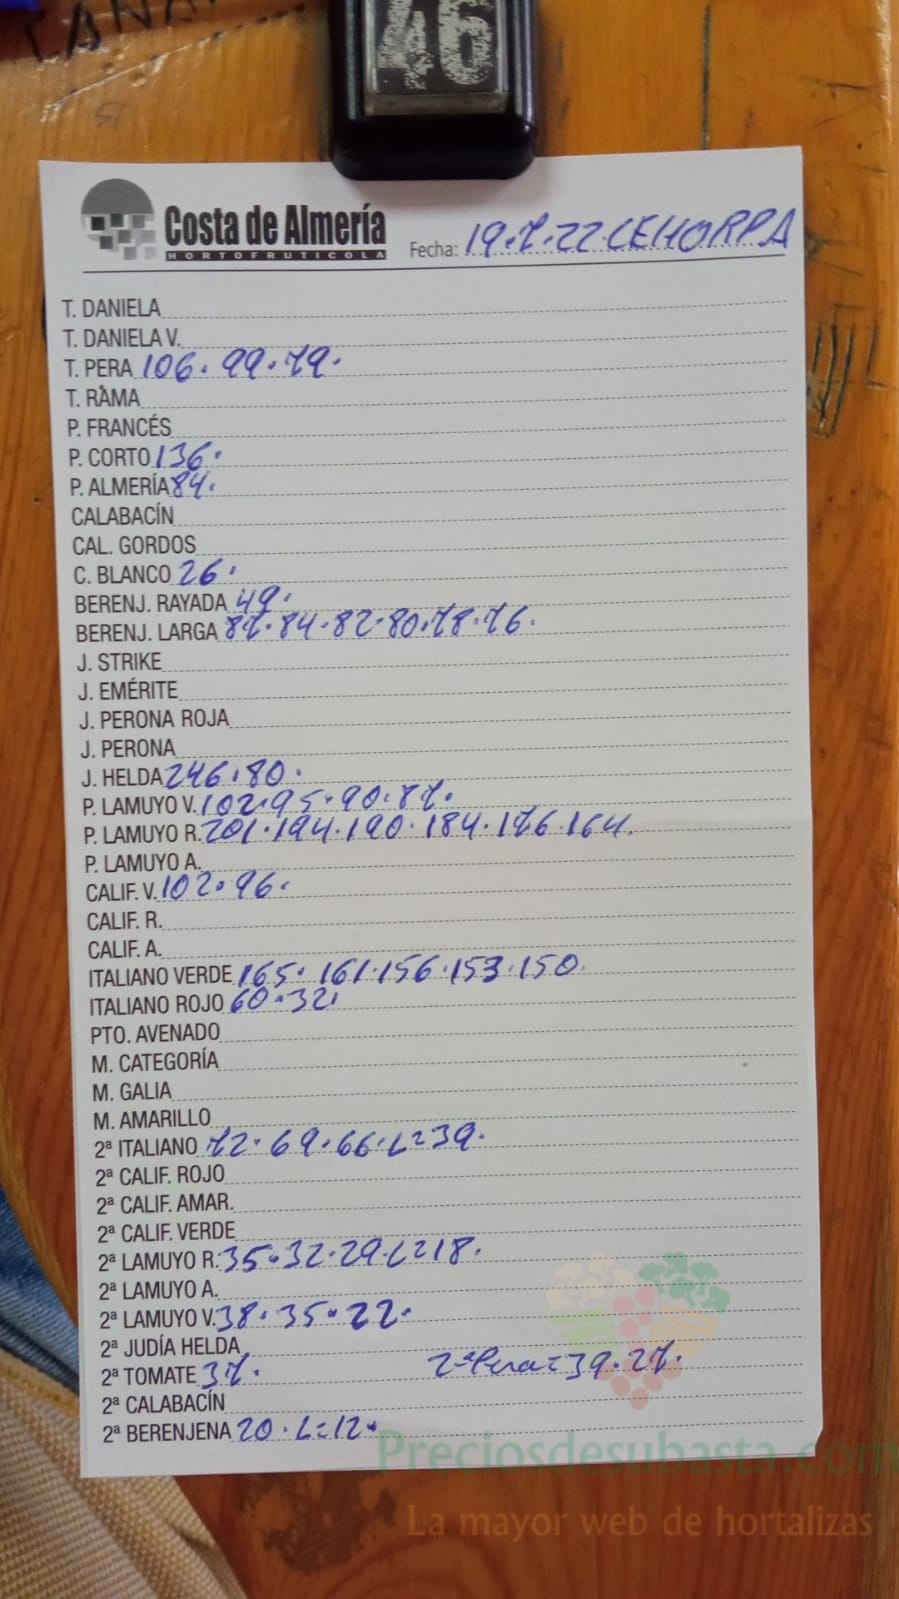 46
Costa de Almería
HORTOFRUTICOLA
Fecha: 19.7.22 CEHORPA
T. DANIELA
T. DANIELA V.
T. PERA 106. 99.79.
T. RAMA
P. FRANCÉS
P. CORTO 136.
P. ALMERÍA 84.
CALABACÍN
CAL. GORDOS
C. BLANCO 26.
BERENJ. RAYADA 49.
BERENJ. LARGA 87.84.82.80.78.76.
J. STRIKE
J. EMÉRITE
J. PERONA ROJA
J. PERONA
J. HELDA 246.80.
P. LAMUYO V. 102.95.90.87.
P. LAMUYO R. 201.194.190.184.176.164.
P. LAMUYO A.
CALIF. V. 102.96.
CALIF. R.
CALIF. A.
ITALIANO VERDE 165.161.156.153.150.
ITALIANO ROJO 60.32.
PTO. AVENADO
M. CATEGORÍA
M. GALIA
M. AMARILLO
2ª ITALIANO 72.69.66.L=39.
2ª CALIF. ROJO
2ª CALIF. AMAR.
2ª CALIF. VERDE
2ª LAMUYO R. 35.32.29.L=18.
2ª LAMUYO A.
2ª LAMUYO V. 38.35.22.
2ª JUDÍA HELDA
2ª TOMATE 37. 2ªPera=39.27.
2ª CALABACÍN
2ª BERENJENA 20.L=12.
Preciosdesubasta.com
La mayor web de hortalizas